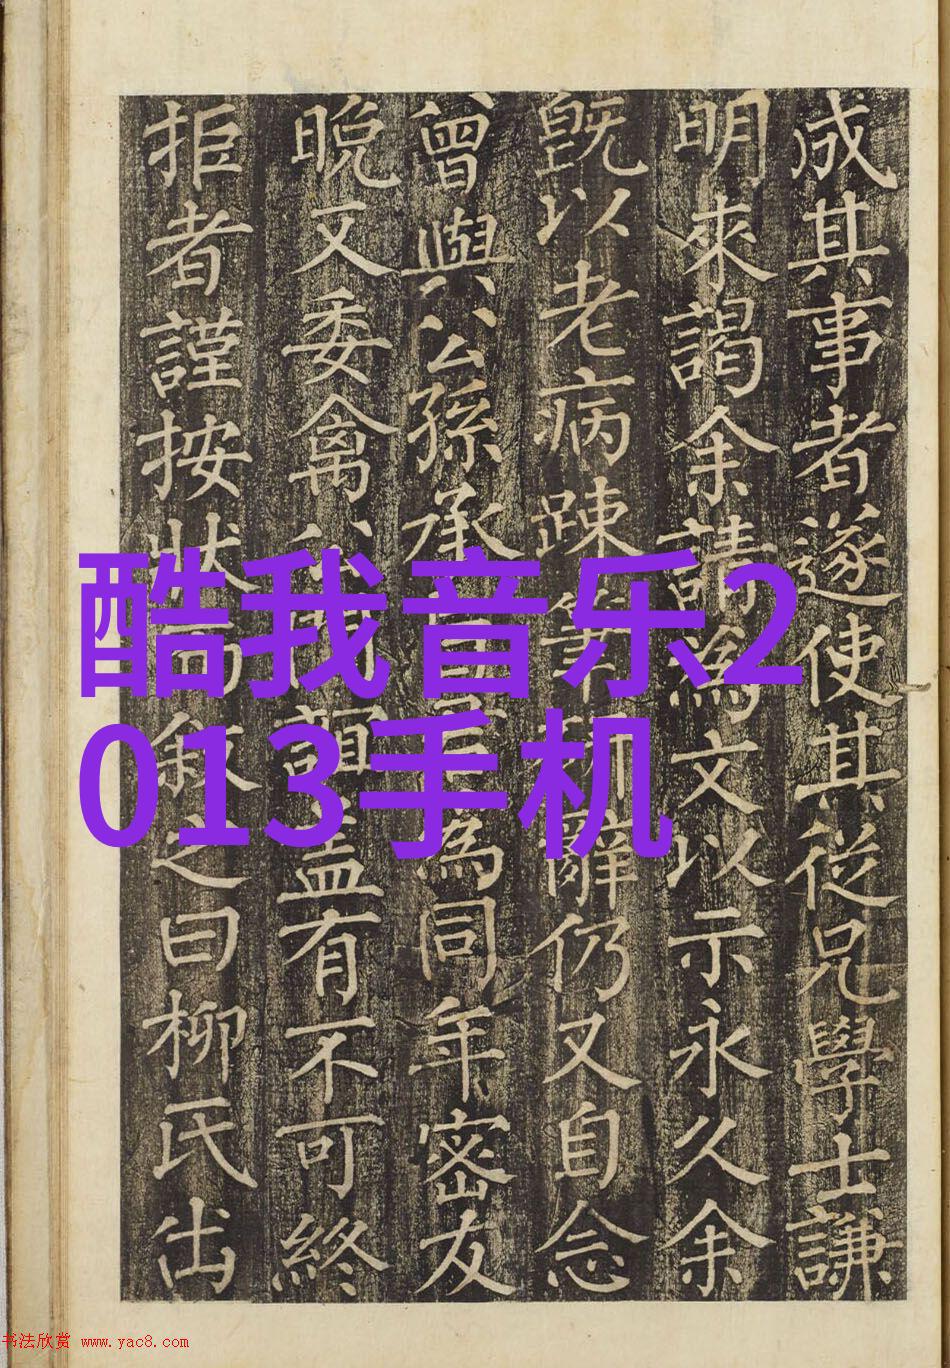 成其事者遂使其從兄學士謙
明來謁余請為文以示永久余
既以老病踈筆研辭仍又自念
曾與公孫承為同年密友
晚又委禽公門盖有不可終
拒者謹按状而叙之曰柳氏出
酷我音乐2
013手机
书法欣赏 www.yac8.com